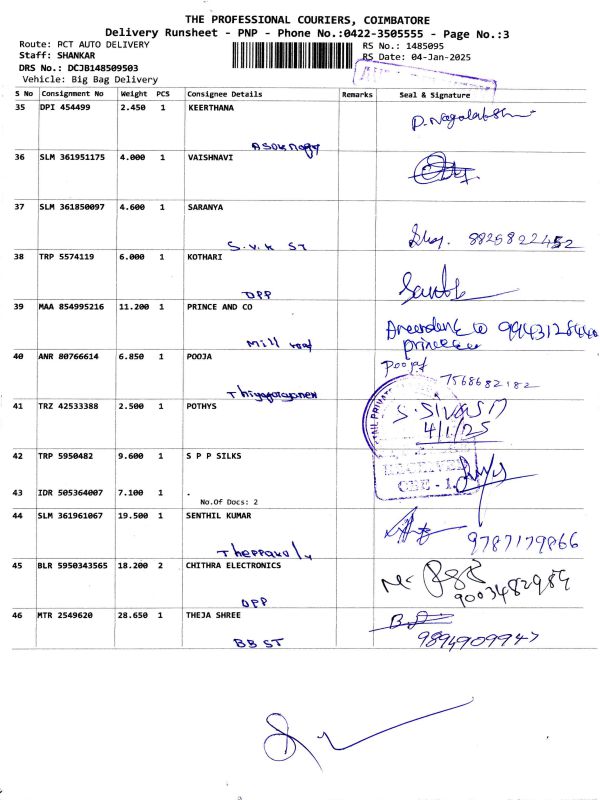 THE PROFESSIONAL COURIERS, COIMBATORE
Delivery Runsheet - PNP - Phone No.:0422-3505555 - Page No.:3
Route: PCT AUTO DELIVERY RS No.: 1485095
Staff: SHANKAR RS Date: 04-Jan-2025
DRS No.: DCJB148509503
Vehicle: Big Bag Delivery
S No Consignment No Weight PCS Consignee Details Remarks Seal & Signature
35 DPI 454499 2.450 1 KEERTHANA
36 SLM 361951175 4.000 1 VAISHNAVI
37 SLM 361850097 4.600 1 SARANYA
S.V.K ST 8825822452
38 TRP 5574119 6.000 1 KOTHARI
DPP
39 MAA 854995216 11.200 1 PRINCE AND CO
Mill road
40 ANR 80766614 6.850 1 POOJA
7568682182
41 TRZ 42533388 2.500 1 POTHYS
S. SIVASM
4/1/25
42 TRP 5950482 9.600 1 S P P SILKS
RECEIVED
CBE - 1
43 IDR 505364007 7.100 1 .
No.Of Docs: 2
44 SLM 361961067 19.500 1 SENTHIL KUMAR
9787179866
45 BLR 5950343565 18.200 2 CHITHRA ELECTRONICS
DPP 9003482989
46 MTR 2549620 28.650 1 THEJA SHREE
BB ST 9894909947